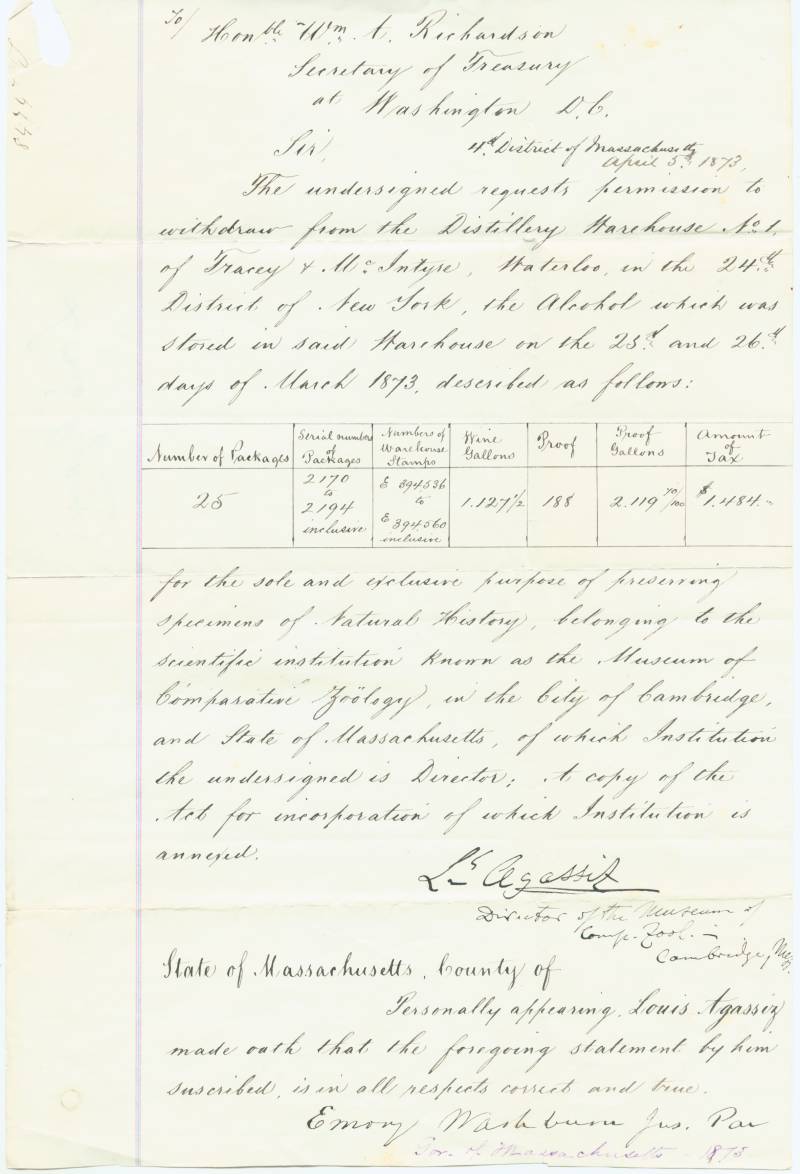 To/
Honble Wm. A. Richardson
Secretary of Treasury
at Washington D.C.
Sir,
4th District of Massachusetts
April 5th 1873,
The undersigned requests permission to
withdraw from the Distillery Warehouse No. 1,
of Tracey & McIntyre, Waterloo, in the 24th
District of New York, the Alcohol which was
stored in said Warehouse on the 25th and 26th
days of March 1873, described as follows:
Number of Packages | Serial numbers of Packages | Numbers of Warehouse Stamps | Wine Gallons | Proof | Proof Gallons | Amount of Tax
25 | 2170 to 2194 inclusive | E 394536 to E 394560 inclusive | 1.127 1/2 | 188 | 2.119 70/100 | $1.484.
for the sole and exclusive purpose of preserving
specimens of Natural History, belonging to the
scientific institution known as the Museum of
Comparative Zoölogy, in the City of Cambridge,
and State of Massachusetts, of which Institution
the undersigned is Director; A copy of the
Act for incorporation of which Institution is
annexed.
Ls Agassiz
Director of the Museum of
Comp. Zool.
Cambridge,
State of Massachusetts, County of
Personally appearing, Louis Agassiz
made oath that the foregoing statement by him
suscribed, is in all respects correct and true.
Emory Washburn Jus. Pac
Gov. of Massachusetts - 1873